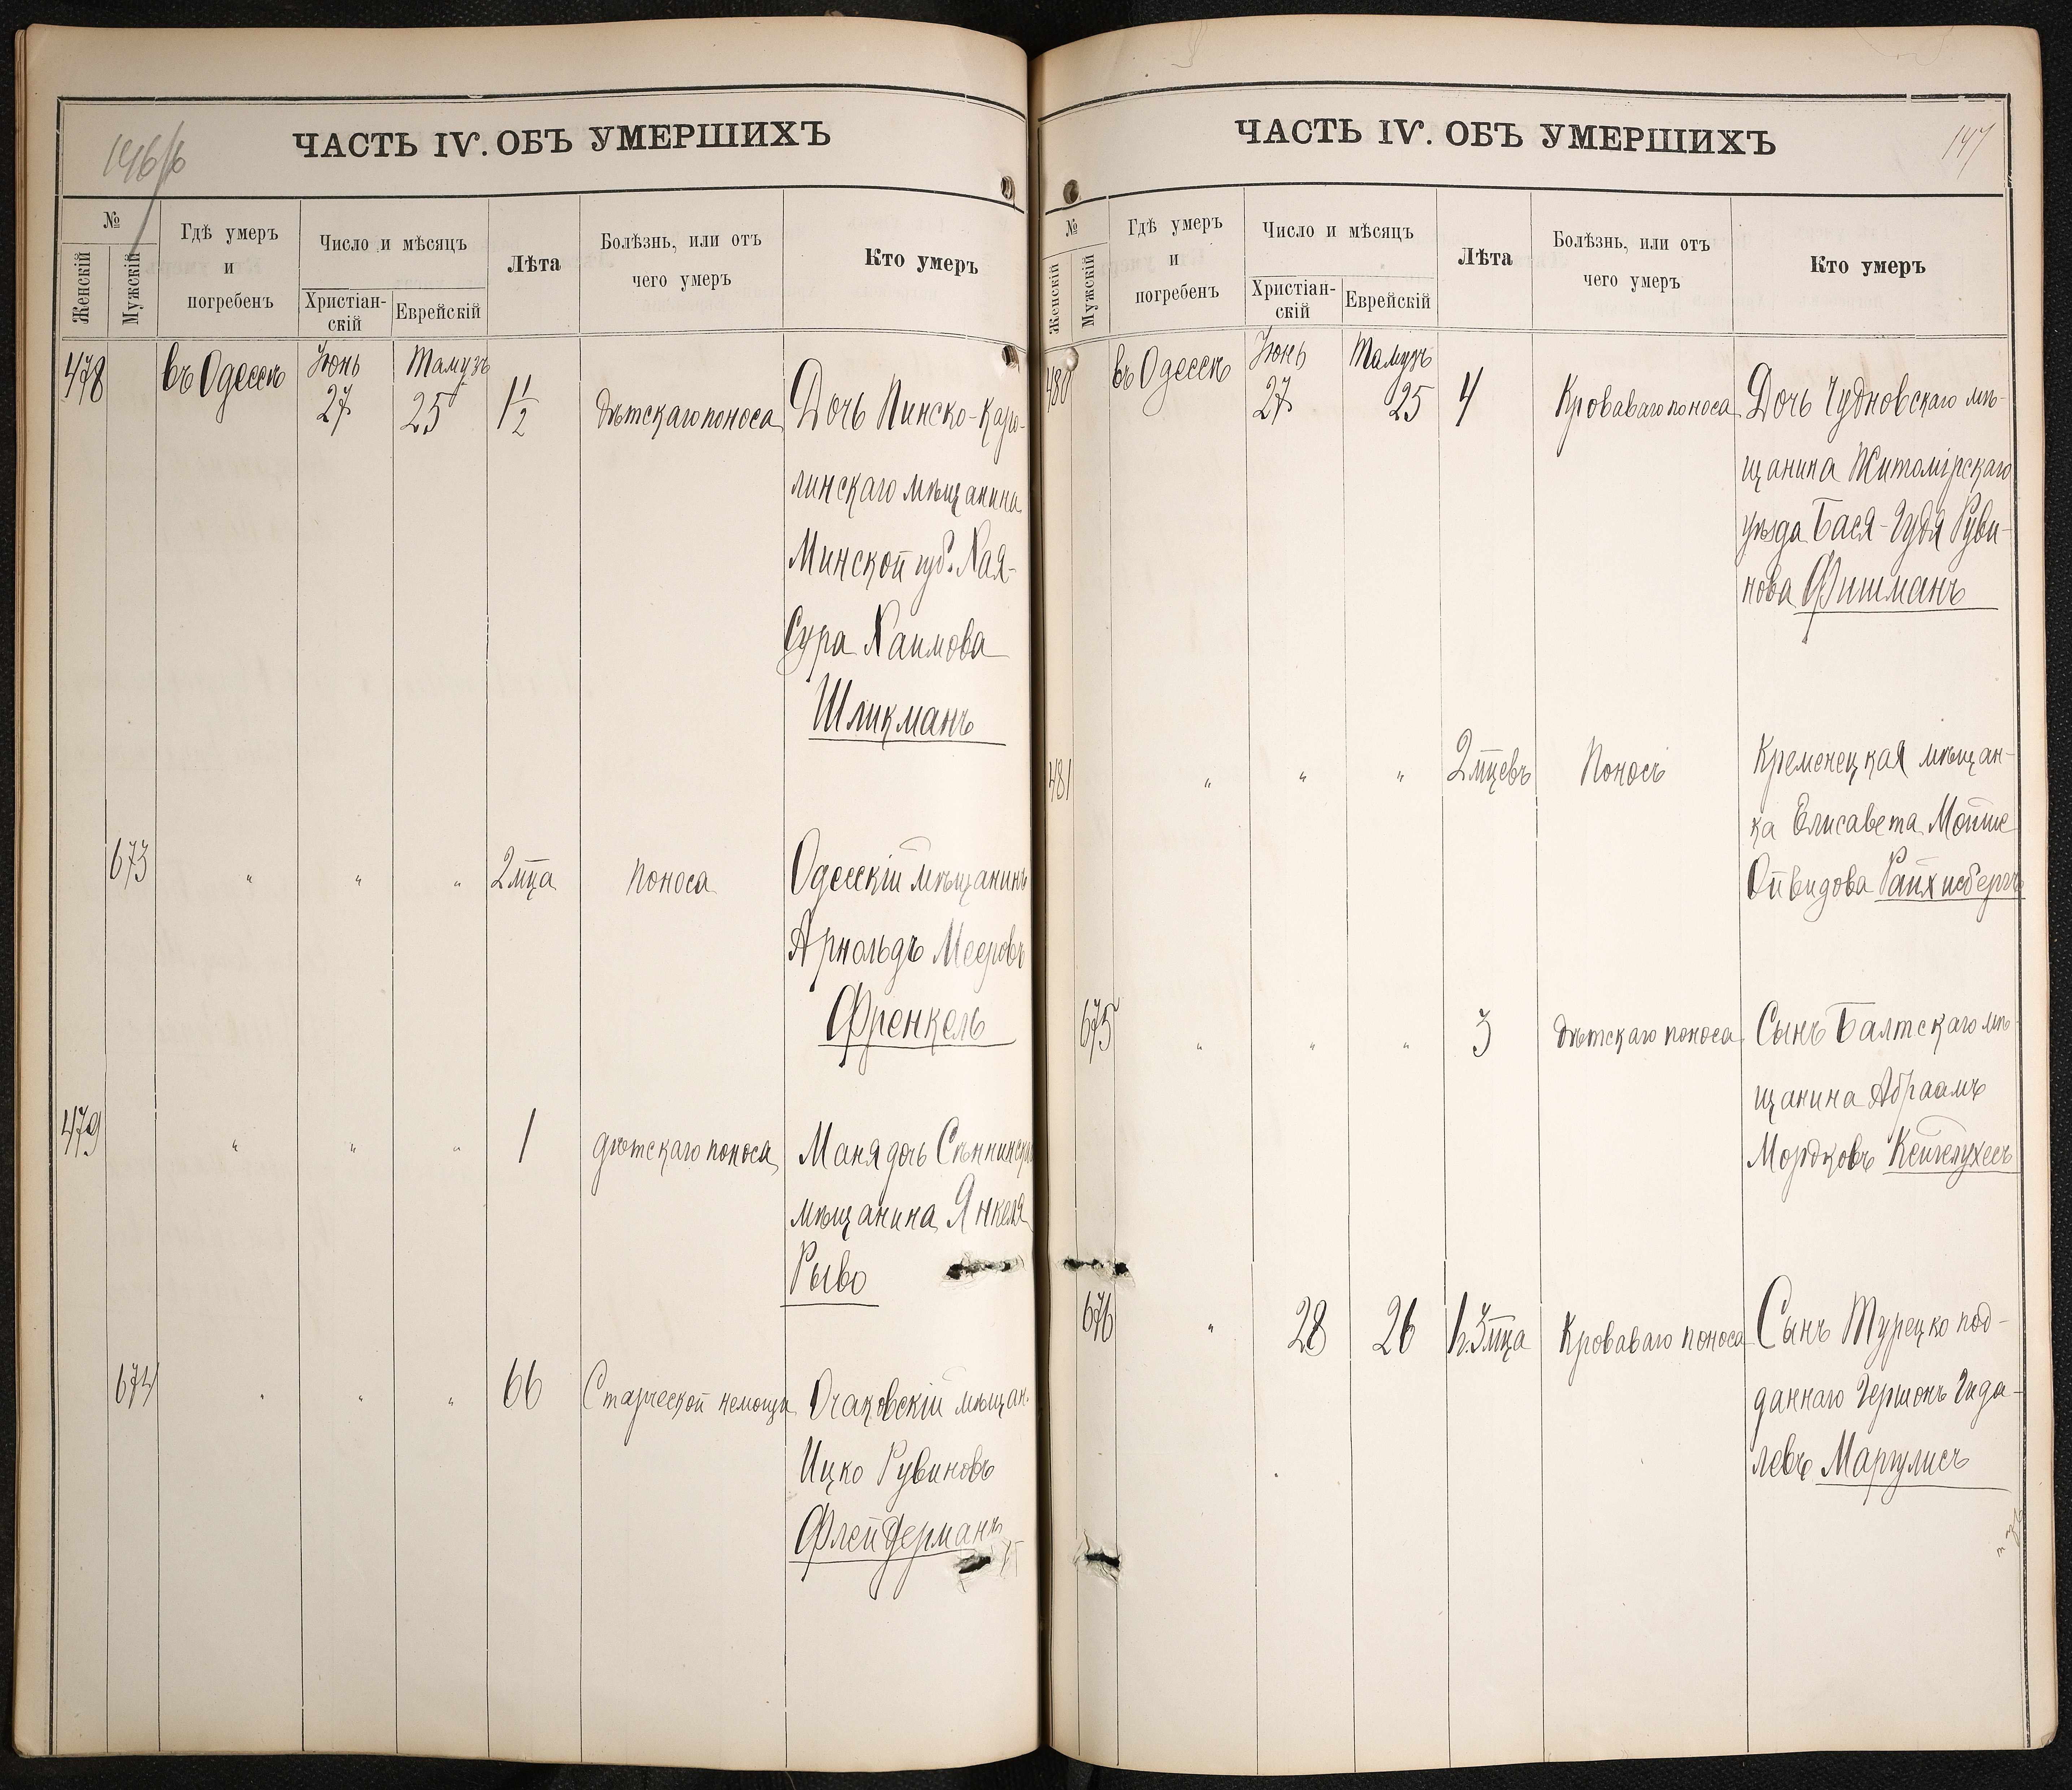 146/б
ЧАСТЬ IV. ОБЪ УМЕРШИХЪ
№
Женскій
Мужскій
Гдѣ умеръ
и
погребенъ
Число и мѣсяцъ
Христіан-
скій
Еврейскій
Лѣта
Болѣзнь, или отъ
чего умеръ
Кто умеръ
478 въ Одессѣ Іюнь 27 Тамузъ 25 1 1/2 дѣтскаго поноса Дочь Пинско-Каро-
линскаго мѣщанина
Минской губ. Хая-
Сура Хаимова
Шликманъ
673 " " " 2 мца Поноса Одесскій мѣщанинъ
Арнольдъ Мееровъ
Френкель
479 " " " 1 дѣтскаго поноса Маня дочь
мѣщанина Янкеля
Рыво
674 " " " 66 Старческой немощи Очаковскій мѣщан.
Ицко Рувиновъ
Флейдерманъ
147
ЧАСТЬ IV. ОБЪ УМЕРШИХЪ
№
Женскій
Мужскій
Гдѣ умеръ
и
погребенъ
Число и мѣсяцъ
Христіан-
скій
Еврейскій
Лѣта
Болѣзнь, или отъ
чего умеръ
Кто умеръ
480 въ Одессѣ Іюнь 27 Тамузъ 25 4 Кроваваго поноса Дочь Чудновскаго мѣ-
щанина Житомірскаго
уѣзда Бася-Чудя Руви-
нова Фишманъ
481 " " " 2 мцевъ Поносъ Кременецкая мѣщан-
ка Елисавета Мойше
Ойвидова
675 " " " 3 дѣтскаго поноса Сынъ Балтскаго мѣ-
щанина Абраамъ
Мордковъ
676 " 28 26 1 г. 3 мца Кроваваго поноса Сынъ Турецко под-
даннаго Гершонъ Гида-
левъ Маргулисъ